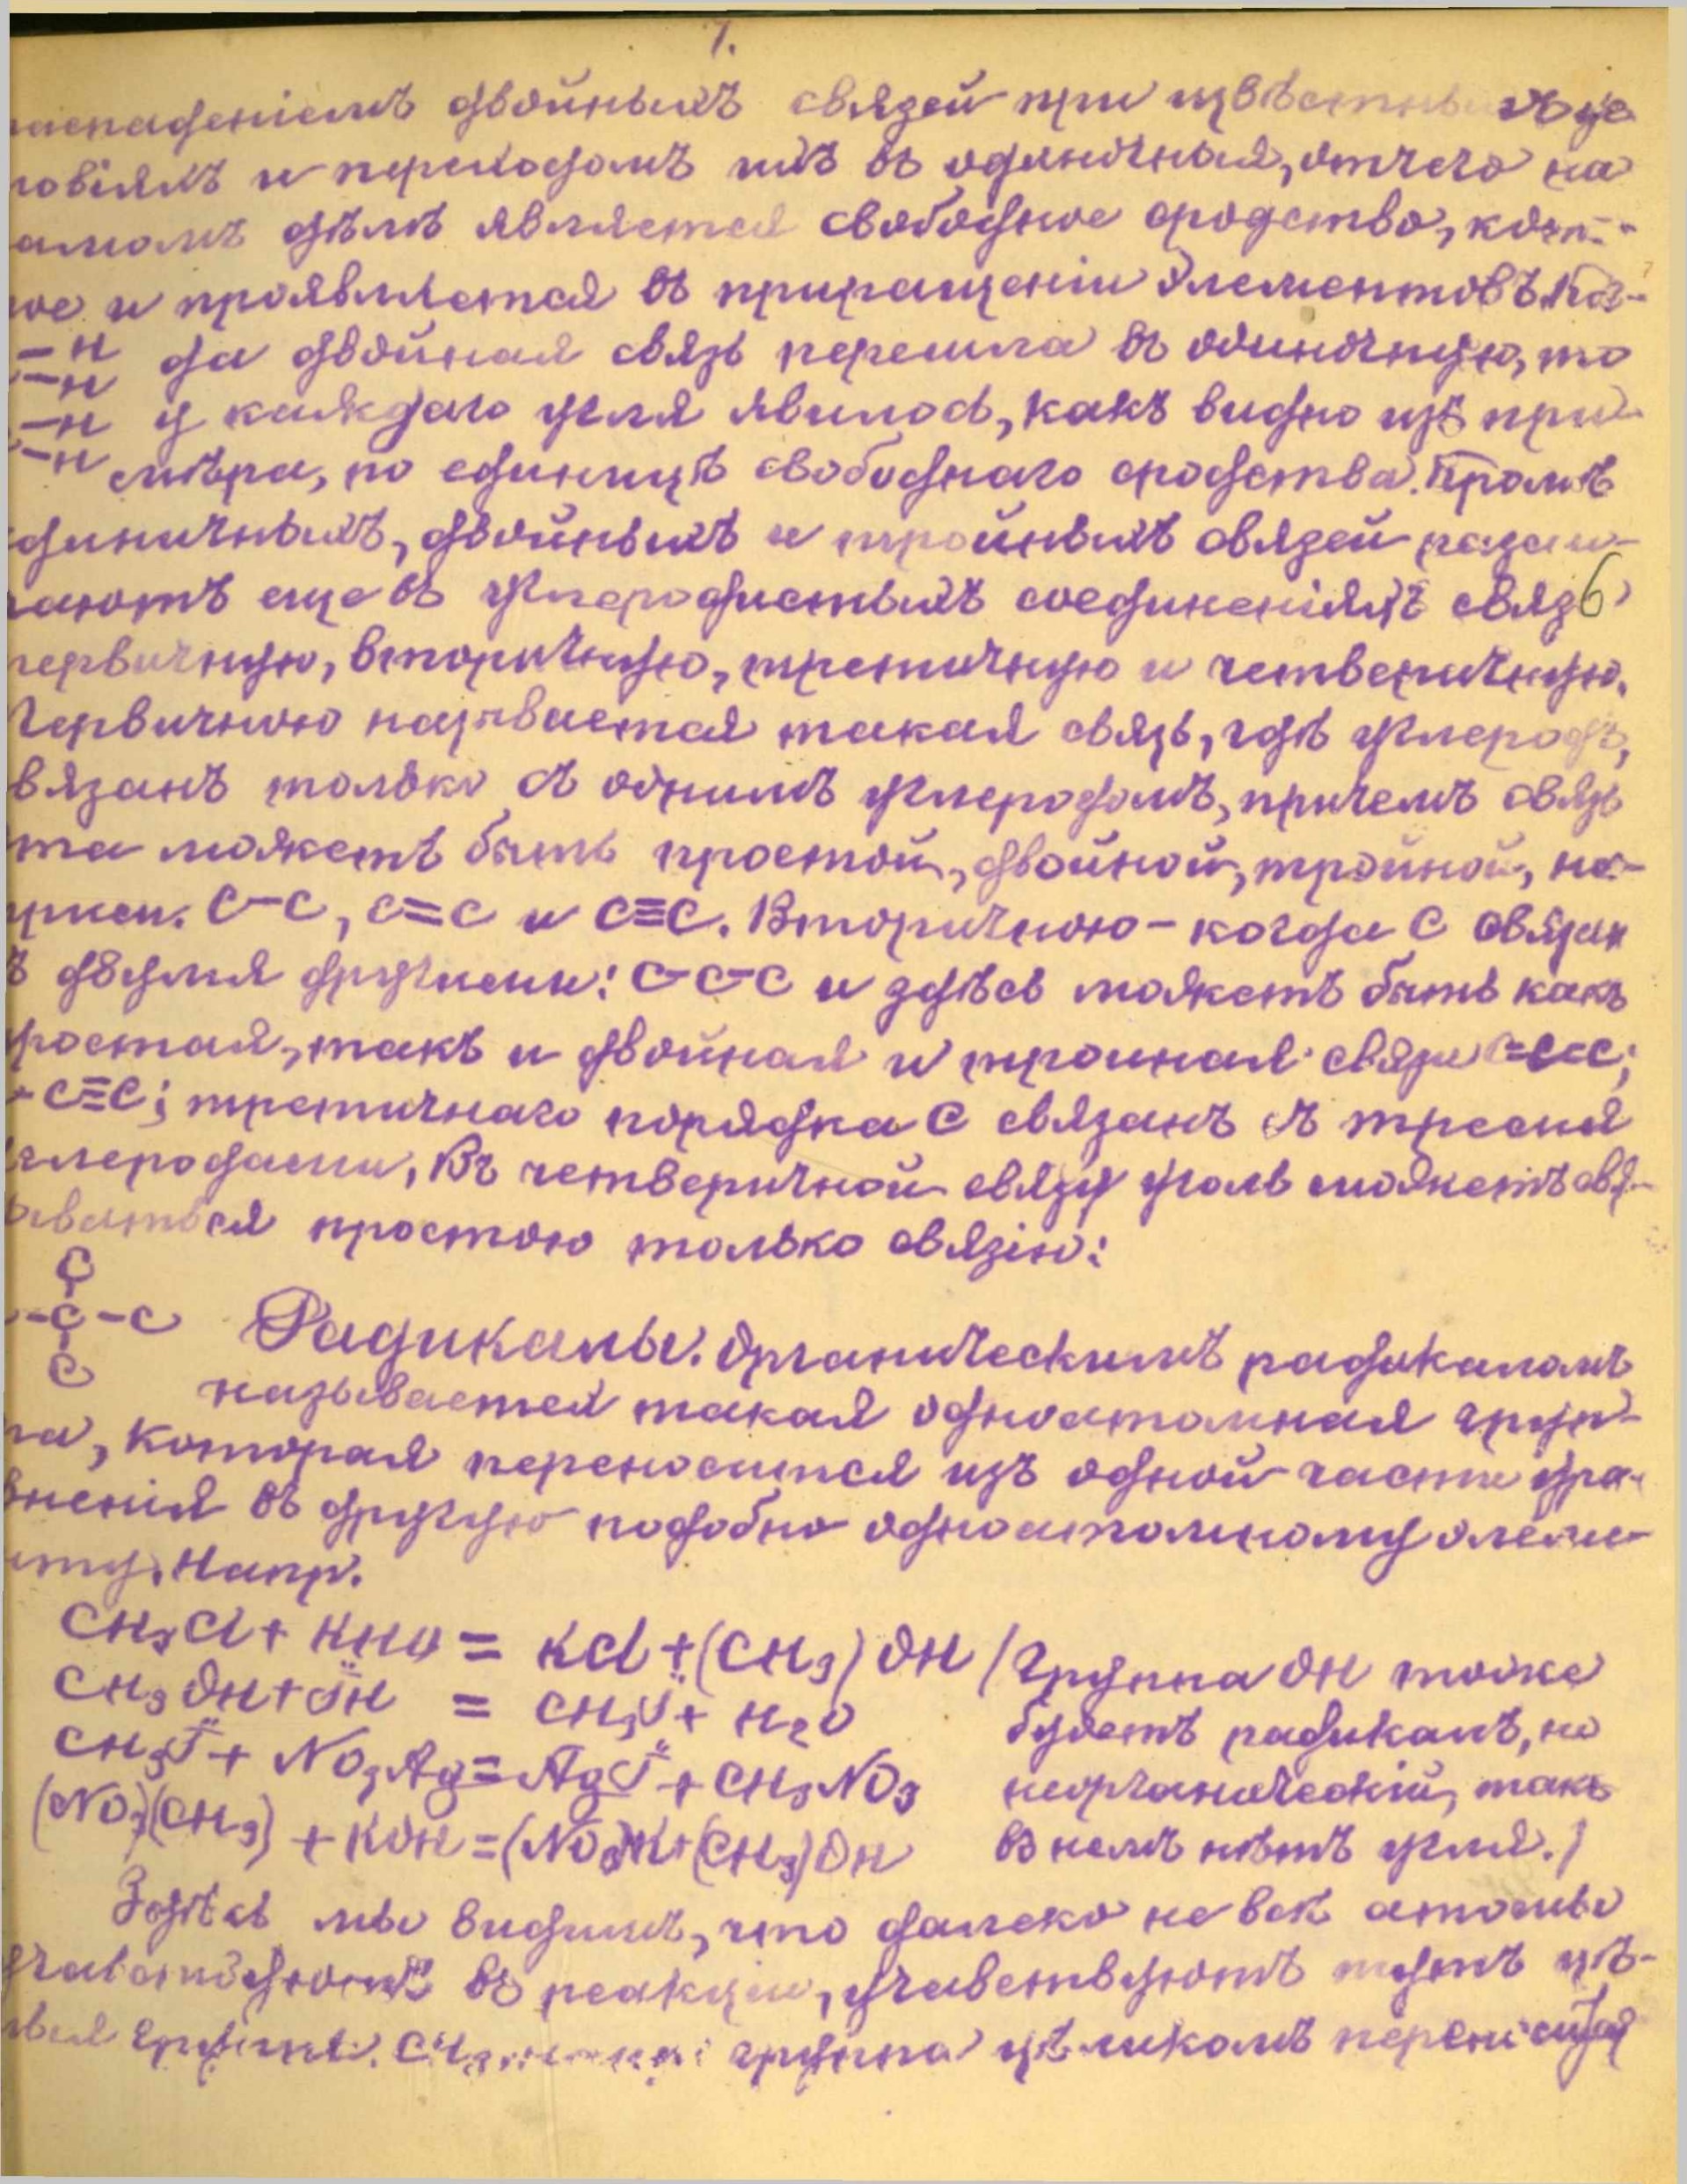 7.
распаденіемъ двойныхъ связей при извѣстныхъ ус
ловіяхъ и переходомъ ихъ въ одиночныя, отчего на
самомъ дѣлѣ является свободное сродство, кото-
рое и проявляется въ приращеніи элементовъ. Ког-
=H да двойная связь перешла въ одиночную, то
-H
-H у каждаго угля явилось, какъ видно изъ при
-H мѣра, по единицѣ свободнаго сродства. Кромѣ
единичныхъ, двойныхъ и тройныхъ связей разли-
чаютъ еще въ углеродистыхъ соединеніяхъ связь
первичную, вторичную, третичную и четверичную.
Первичною называется такая связь, гдѣ углеродъ,
связанъ только съ однимъ углеродомъ, причемъ связь
эта можетъ быть простой, двойной, тройной, на-
прим. C-C, C=C и C≡C. Вторичною - когда C связан
съ двумя другими: C-C-C и здѣсь можетъ быть какъ
простая, такъ и двойная и тройная связи C=C=C;
-C≡C; третичнаго порядка C связанъ съ тремя
углеродами, Въ четверичной связи уголь можетъ свя-
зываться простою только связію:
C
-C-C Радикалы. Органическимъ радикаломъ
C называется такая одноатомная груп-
па, которая переносится изъ одной части ура-
вненія въ другую подобно одноатомному элеме-
нту. Напр.
CH₃Cl + KHO = KCl + (CH₃)OH (Группа OH тоже
CH₃OH + J̈H = CH₃J̈ + H₂O будетъ радикалъ, но
CH₃J̈ + NO₃Ag = AgJ̈ + CH₃NO₃ неорганическій, такъ
(NO₃)(CH₃) + KOH = (NO₃)K + (CH₃)OH въ немъ нѣтъ угля.)
Здѣсь мы видимъ, что далеко не всѣ атомы
участвуютъ въ реакціи, участвуютъ тутъ цѣ-
лыя группы. группа цѣликомъ переносится